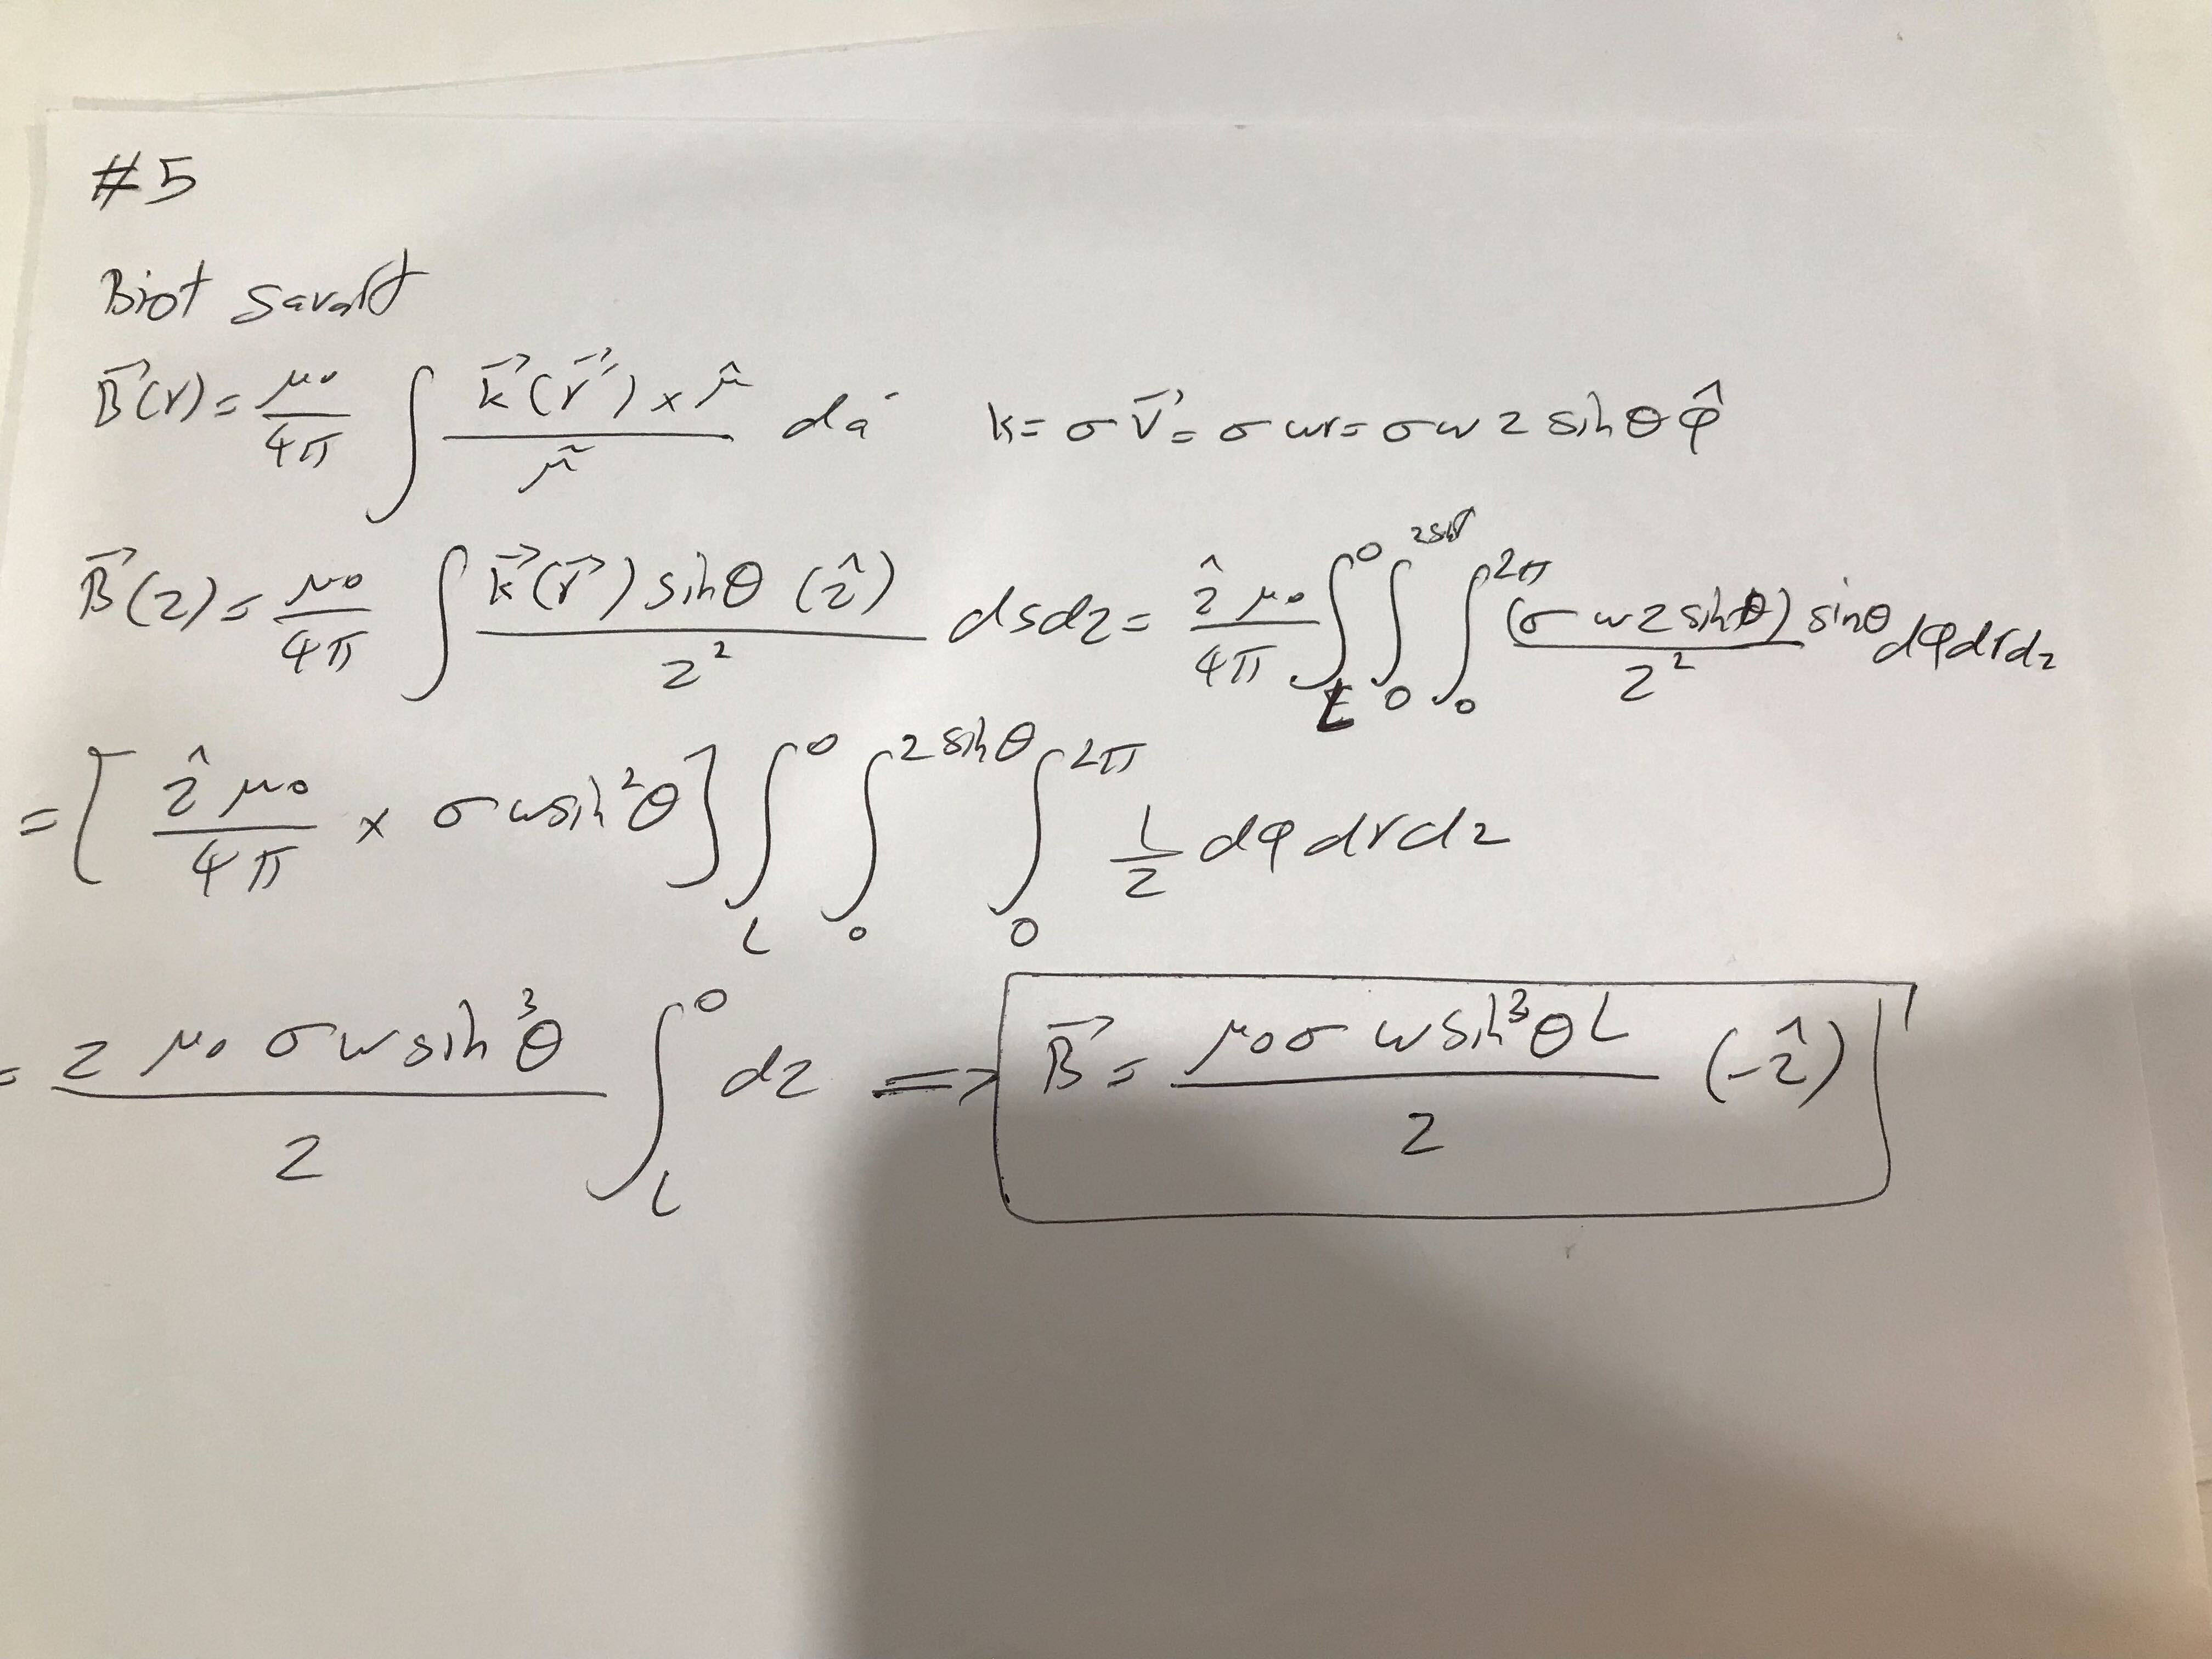 #5
Biot Savart
B⃗(r) = μ₀/4π ∫ k⃗(r⃗') × 𝓇̂ / 𝓇² da' k = σ v⃗ = σ ωr = σ ω z sin θ φ̂
B⃗(z) = μ₀/4π ∫ k⃗(r⃗) sin θ (ẑ) / z² ds dz = ẑ μ₀/4π ∫_L^0 ∫_0^{z sin θ} ∫_0^{2π} (σ ω z sin θ) sin θ / z² dφ dr dz
= [ẑ μ₀/4π × σ ω sin²θ] ∫_L^0 ∫_0^{z sin θ} ∫_0^{2π} 1/z dφ dr dz
= ẑ μ₀ σ ω sin³θ / 2 ∫_L^0 dz ⟹ B⃗ = μ₀ σ ω sin³θ L / 2 (-ẑ)